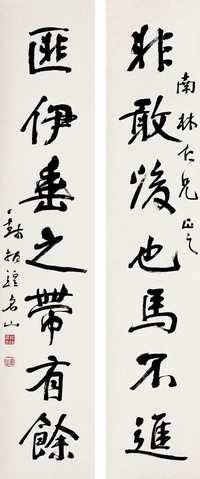 南林仁兄正之
非敢後也馬不進
匪伊垂之帶有餘
振鍠名山